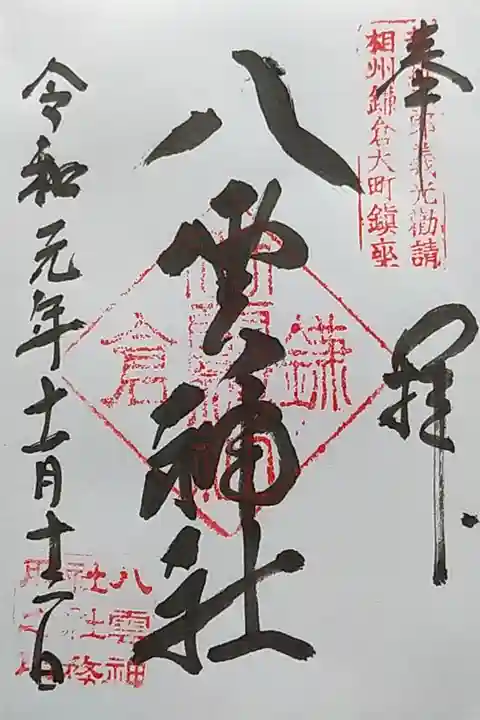 奉拝
郎義光勧請
相州鎌倉大町鎮座
八雲神社
鎌倉
令和元年十一月十二日
八雲神
社社務